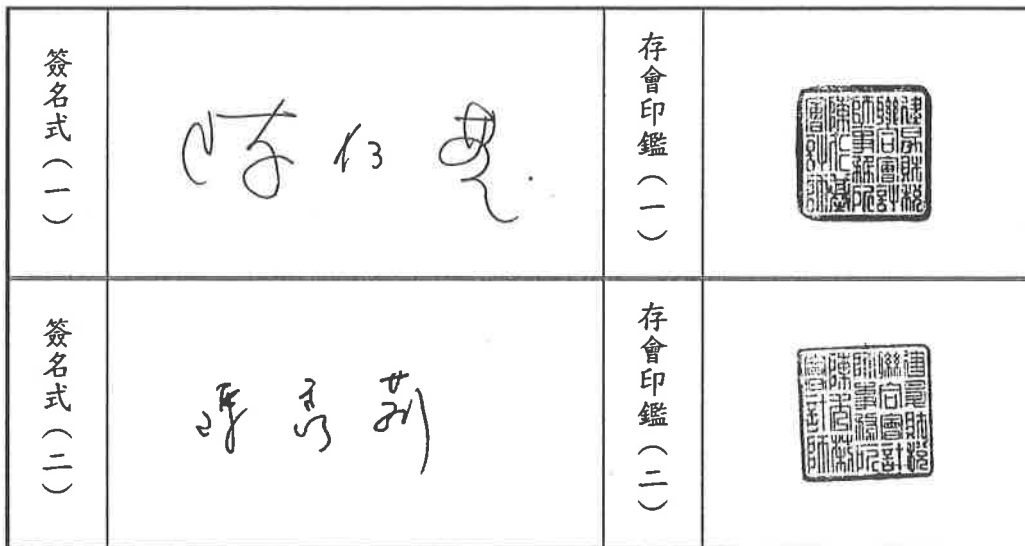 簽名式（一）
陳仁基
存會印鑑（一）
建昇財稅
聯合會計
師事務所
陳仁基
會計師
簽名式（二）
陳秀莉
存會印鑑（二）
建昇財稅
聯合會計
師事務所
陳秀莉
會計師